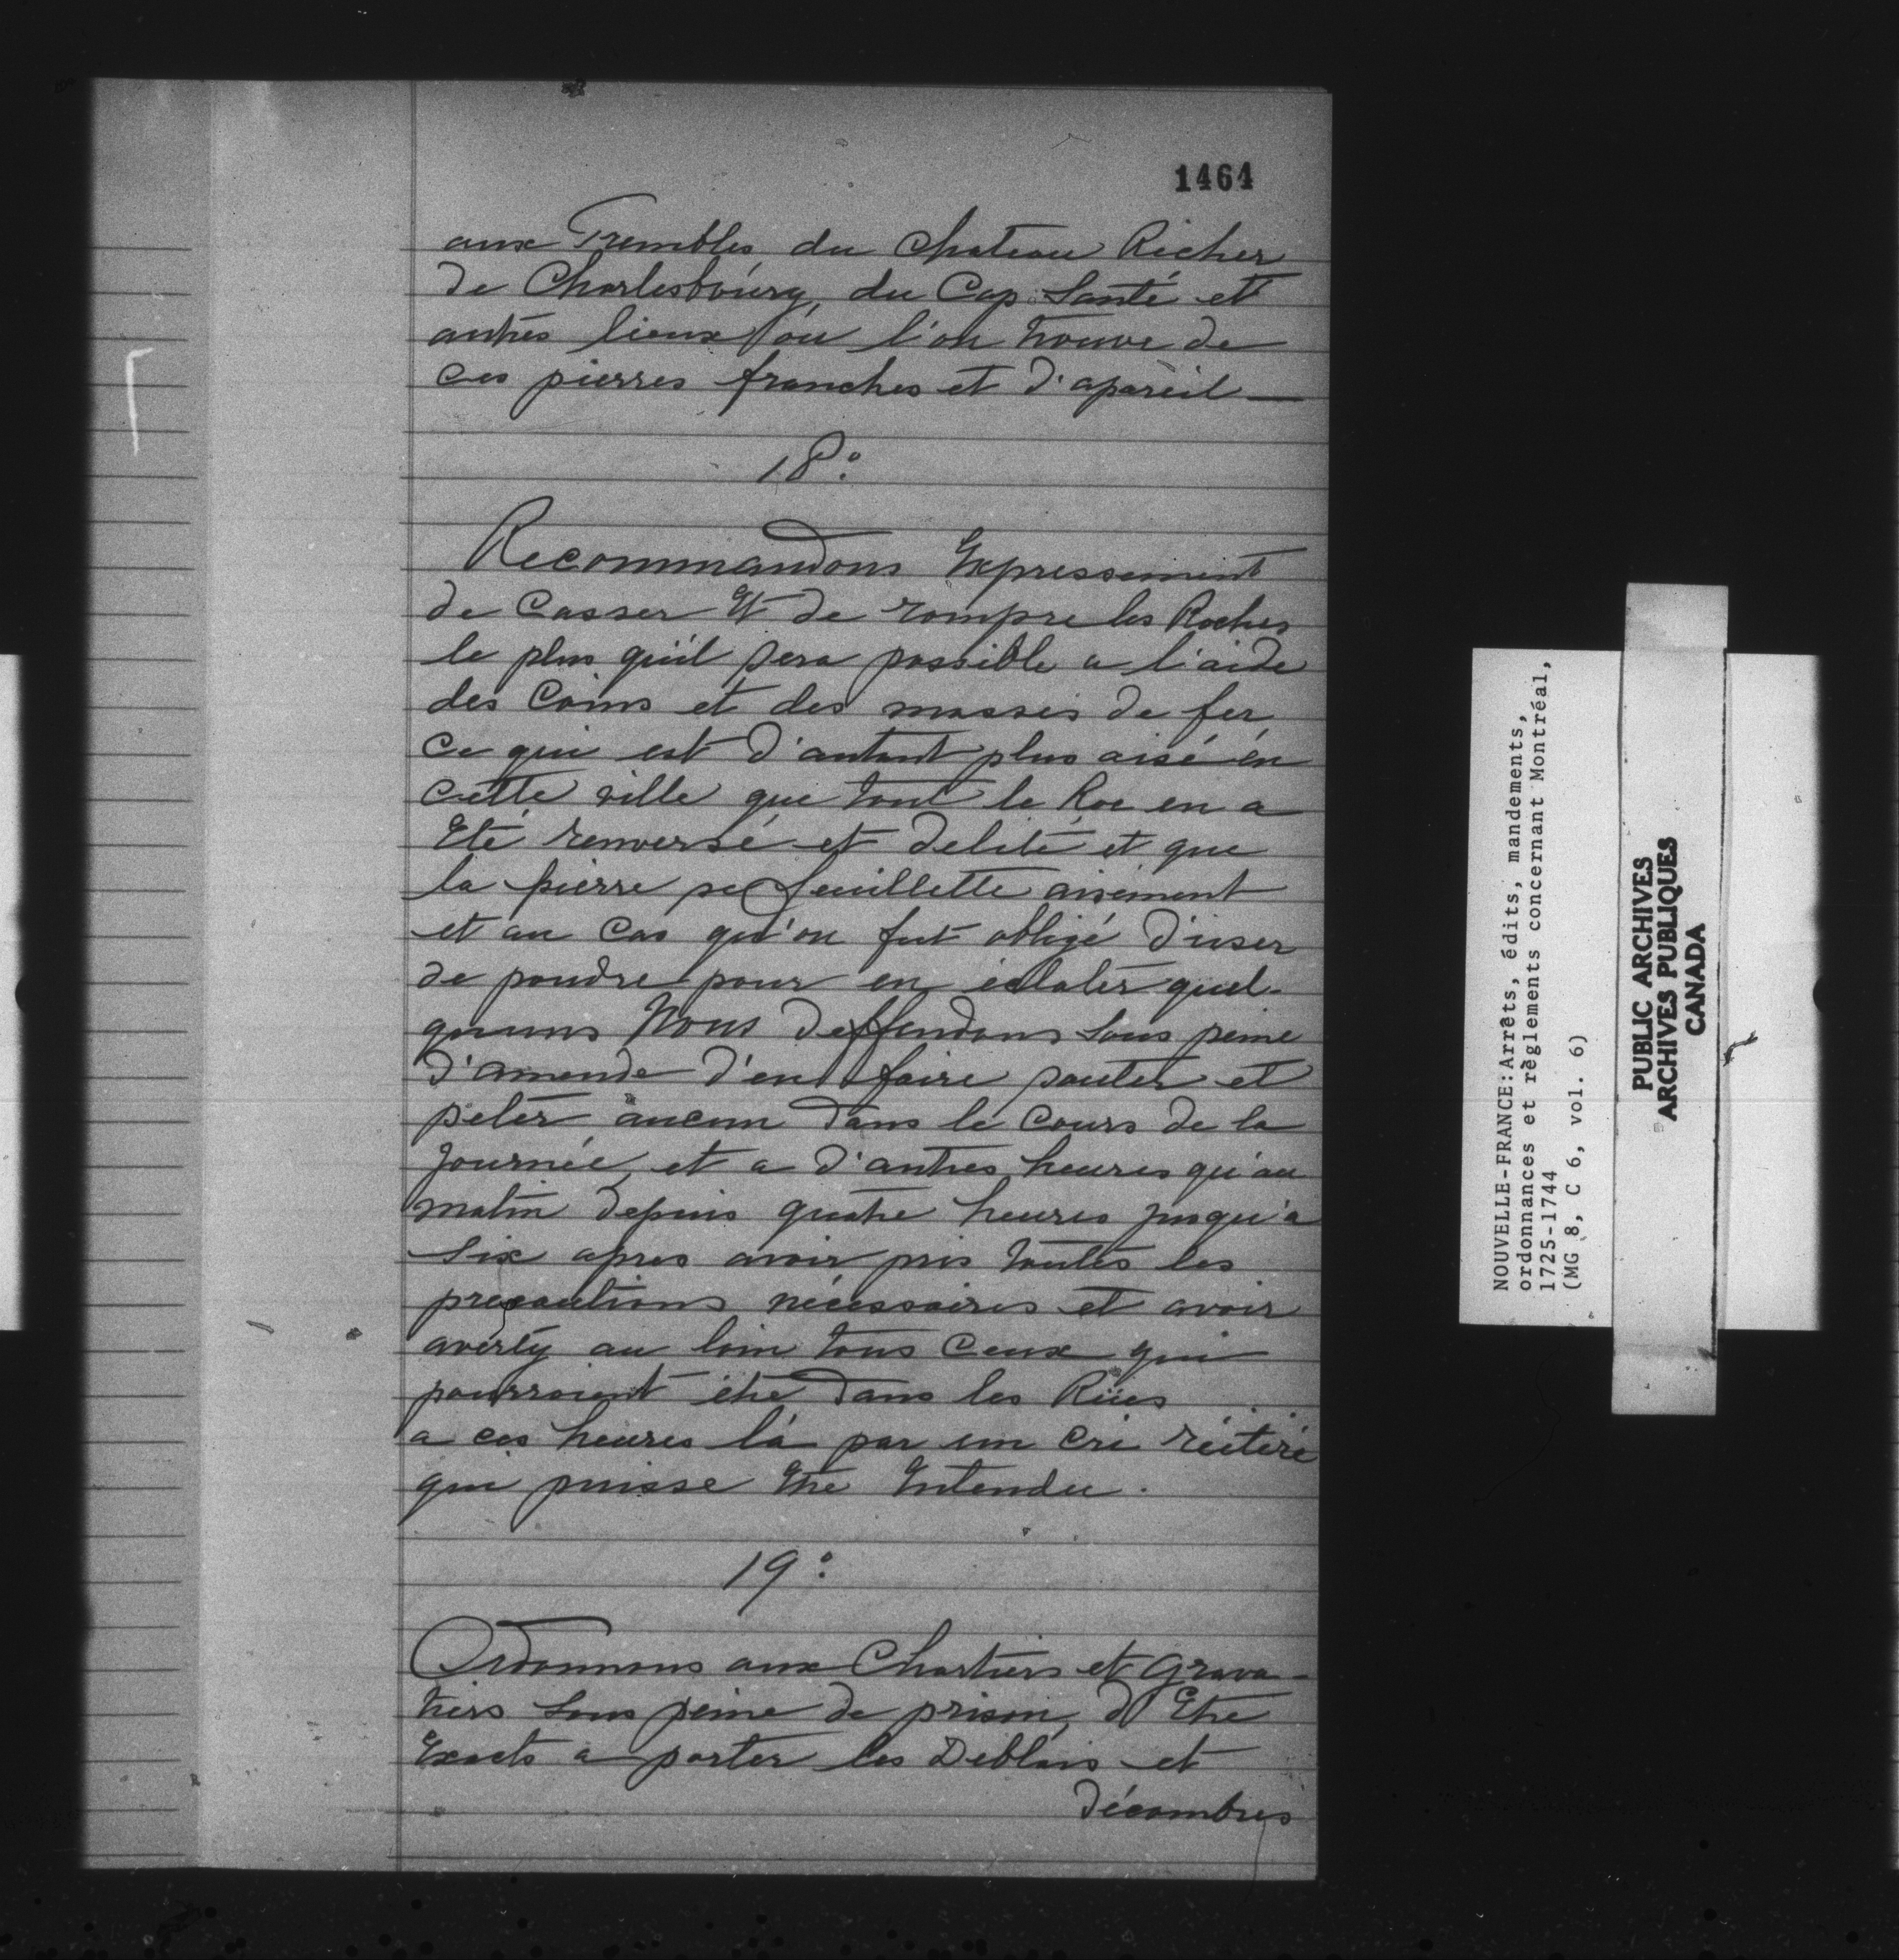 1464
aux Trembles, du Chateau Richer
de Charlesbourg, du Cap Santé et
autres lieux ou l'on trouve de
ces pierres franches et d'apareil —
18°
Recommandons Expressement
de Casser Et de rompre les Roches
le plus qu'il sera possible a l'aide
des Coins et des masses de fer
Ce qui est d'autant plus aisé en
cette ville que tout le Roc en a
Eté renversé et delité et que
la pierre se feuillette aisement
et au Cas qu'on fut obligé d'user
de poudre pour en éclater quel-
quuns Nous Deffendons sous peine
d'amende d'en faire sauter et
peter aucun dans le Cours de la
Journée, et a d'autres heures qu'au
matin depuis quatre heures jusqu'a
Six apres avoir pris toutes les
precautions nécessaires et avoir
averty au loin tous Ceux qui
pourroient être dans les Rües
a ces heures là par un Cri réiteré
qui puisse Etre Entendu.
19°
Ordonnons aux Chartiers et Grava-
tiers sous peine de prison, d'Etre
Exacts a porter les Deblais et
décombres
NOUVELLE-FRANCE:Arrêts, édits, mandements,
ordonnances et règlements concernant Montréal,
1725-1744
(MG 8, C 6, vol. 6)
PUBLIC ARCHIVES
ARCHIVES PUBLIQUES
CANADA